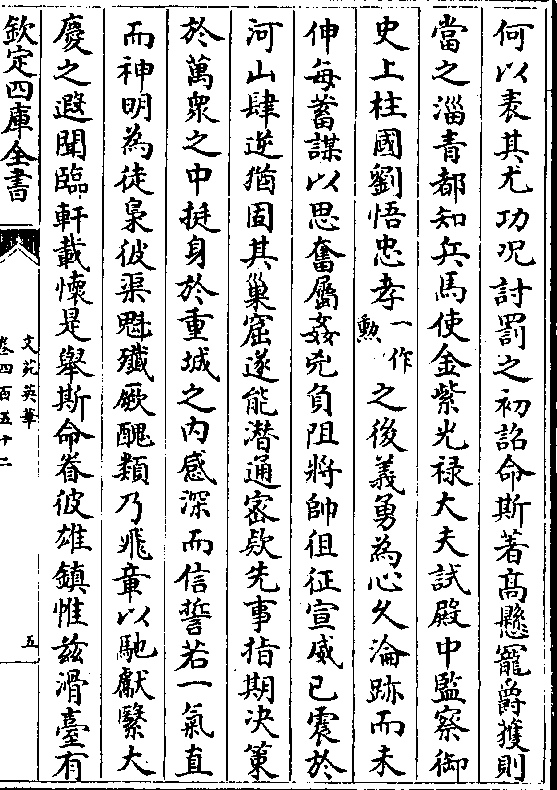 何以表其尤功况討罰之初詔命斯著髙懸寵爵獲則
當之淄青都知兵馬使金紫光禄大夫試殿中監察御
史上柱國劉悟忠孝一作勲之後義勇為心久淪跡而未
伸每蓄謀以思奮屬姦兇負阻將帥徂征宣威已震於
河山肆逆猶固其巢窟遂能潜通密欵先事指期决策
於萬衆之中挺身於重城之内感深而信誓若一氣直
而神明為徒梟彼渠魁殲厥醜類乃飛章以馳獻繄大
慶之遐聞臨軒載懷是舉斯命眷彼雄鎮惟兹滑臺有
欽定四庫全書
文苑英華
卷四百五十二
五